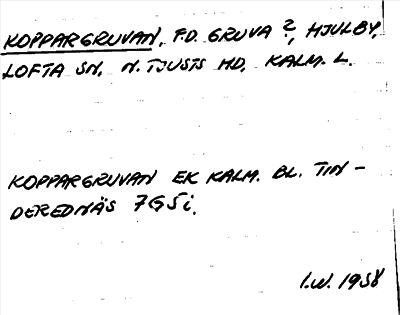 KOPPARGRUVAN, F.D. GRUVA ?, HJULBY,
LOFTA SN, N. TJUSTS HD, KALM. L.
KOPPARGRUVAN EK KALM. BL. TIN-
DEREDNÄS 7G5i.
I.W. 1958